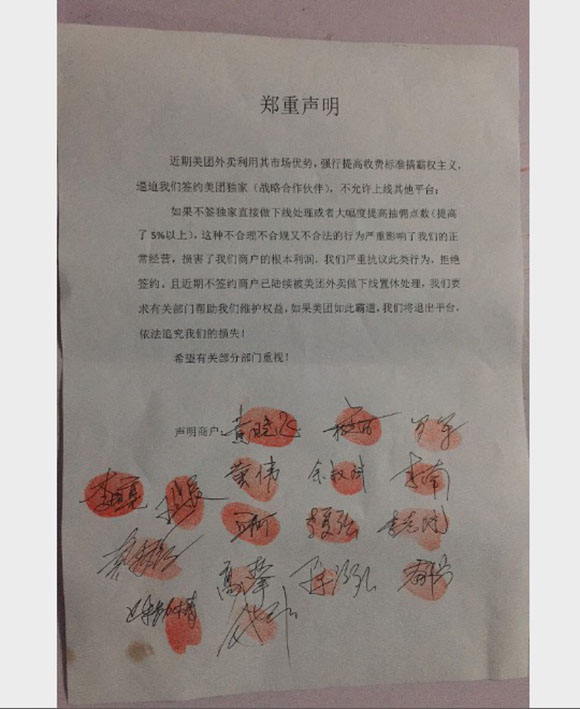 郑重声明
近期美团外卖利用其市场优势，强行提高收费标准搞霸权主义，
逼迫我们签约美团独家（战略合作伙伴），不允许上线其他平台；
如果不签独家直接做下线处理或者大幅度提高抽佣点数（提高
了5%以上），这种不合理不合规又不合法的行为严重影响了我们的正
常经营，损害了我们商户的根本利润。我们严重抗议此类行为，拒绝
签约，且近期不签约商户已陆续被美团外卖做下线置休处理，我们要
求有关部门帮助我们维护权益，如果美团如此霸道，我们将退出平台，
依法追究我们的损失！
希望有关部分部门重视！
声明商户：黄晓飞
黄伟 李南